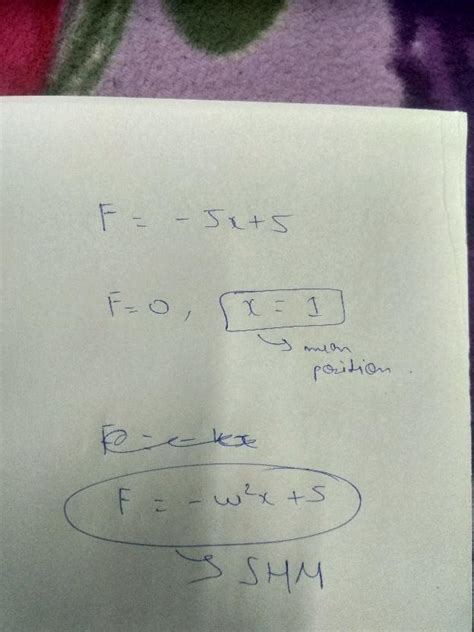 F = - 5x+5
F=0, x = 1
↳ mean
position.
F = -ω²x +5
↳ SHM